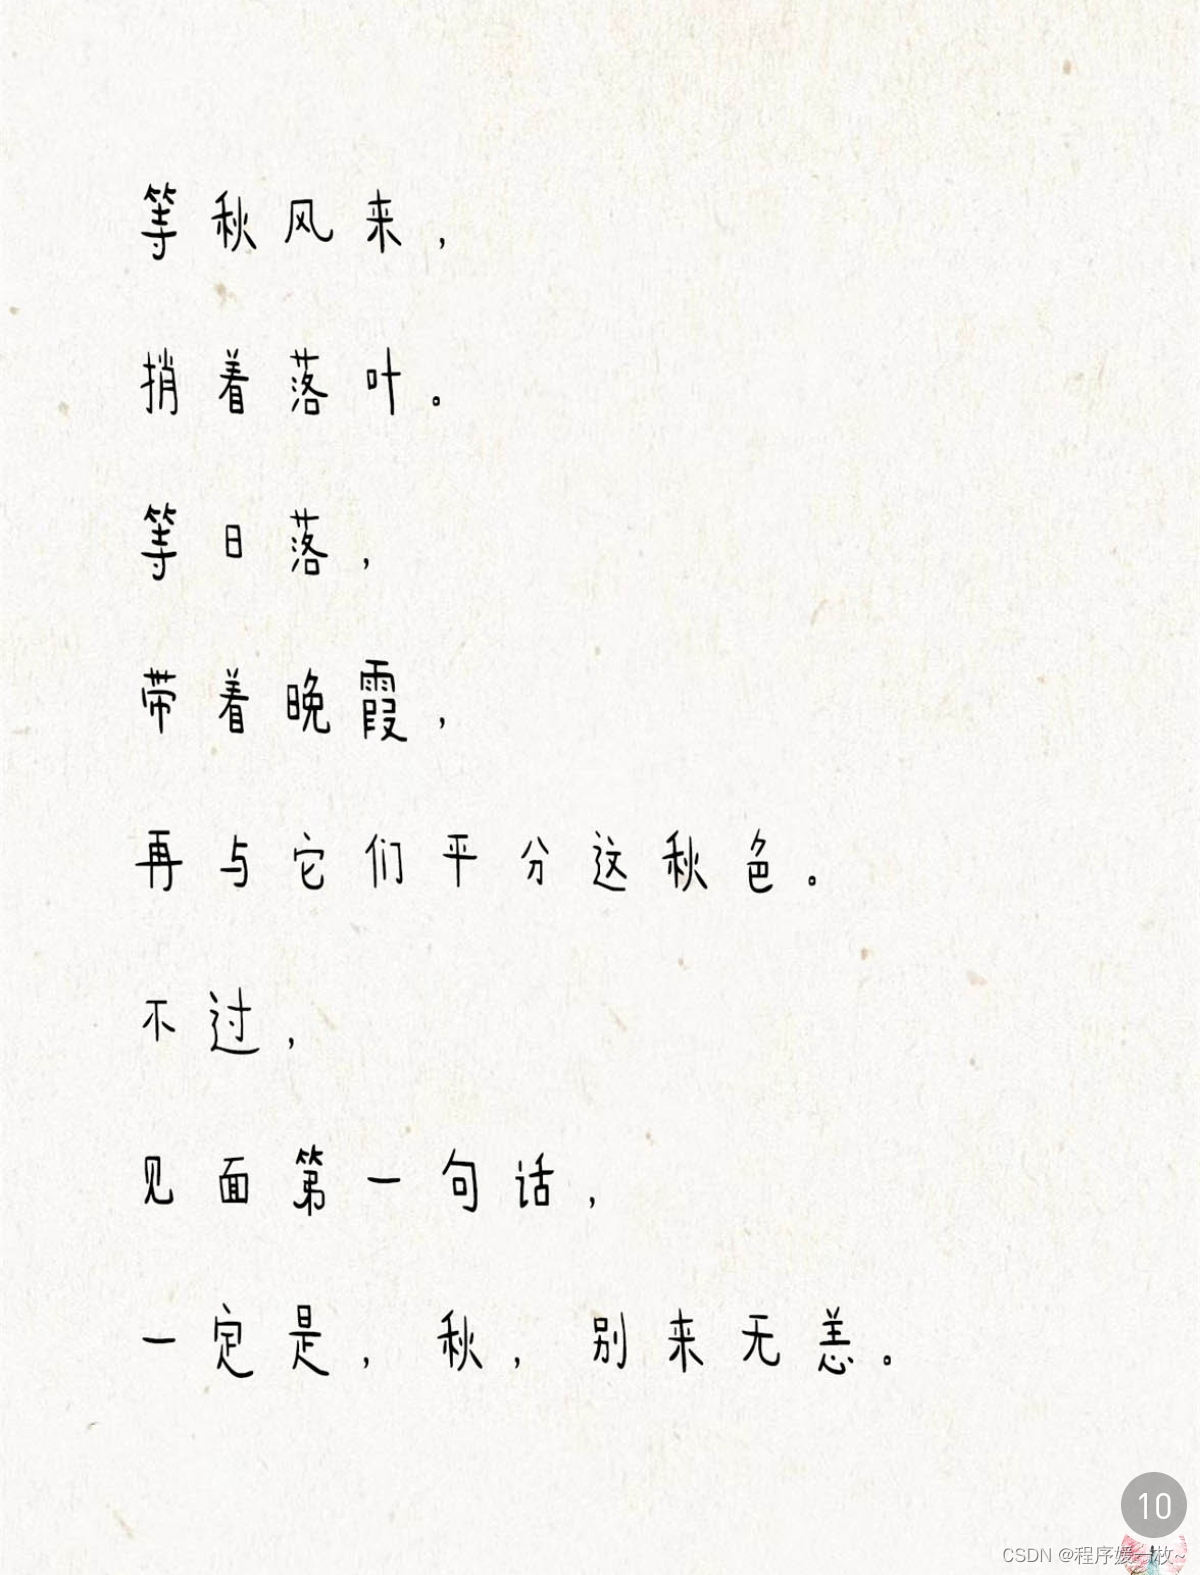 等秋风来，
捎着落叶。
等日落，
带着晚霞，
再与它们平分这秋色。
不过，
见面第一句话，
一定是，秋，别来无恙。
10
CSDN @程序媛一枚~